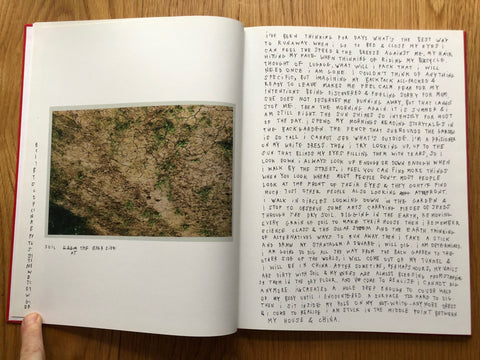 SOIL FROM THE OTHER SIDE
I'VE BEEN THINKING FOR DAYS WHAT'S THE BEST WAY
TO RUNAWAY. WHEN I GO TO BED & CLOSE MY EYES I
CAN FEEL THE SPEED & THE BREEZE AGAINST ME, MY HAIR
HITING MY FACE. WHEN THINKING OF RIDING MY BICYCLE
THOUGHT OF LUGAGE, WHAT WILL I PACK THAT I WILL
NEED ONCE I AM GONE. I COULDN'T THINK OF ANYTHING
SPECIFIC, BUT IMAGINING MY BACKPACK ALL-PACKED &
READY TO LEAVE MAKES ME FEEL CALM. FEAR FOR MY
INTENTIONS BEING DISCOVERED & FEELING SORRY FOR MOM
SHE DOES NOT DESERVES ME RUNNING AWAY, BUT THAT CANNOT
STOP ME. THEN THE MORNING AGAIN IT IS SUMMER & I
AM STILL RIGHT. THE SUN SHINES SO INTENSELY FOR MOST
OF THE DAY. I SPEND MY MORNINGS READING STORYTALES IN
THE BACKGARDEN. THE FENCE THAT SURROUNDS THE GARDEN
IS SO TALL I CANNOT SEE WHAT'S OUTSIDE. I'M A PRISONER
ON MY WHITE DRESS. THEN I TRY LOOKING UP, UP TO THE
SUN THAT BLINDS MY EYES FILLING THEM WITH TEARS, SO I
LOOK DOWN. I ALWAYS LOOK UP ENOUGH OR DOWN ENOUGH WHEN
I WALK BY THE STREET, I FEEL YOU CAN FIND MORE THINGS
WHEN YOU LOOK WHERE MOST PEOPLE DON'T. MOST PEOPLE
LOOK AT THE FRONT OF THEIR EYES & THEY DON'T FIND
MUCH, JUST OTHER PEOPLE ALSO LOOKING AT THE FRONT.
I WALK IN CIRCLES LOOKING DOWN IN THE GARDEN &
I STOP TO OBSERVE SOME ANTS CARRYING PIECES OF GRASS
THROUGH THE DRY SOIL. DIGGING IN THE EARTH, REMOVING
EVERY GRAIN OF SOIL TO MAKE THEIR HOUSE. THEN I REMEMBER
SCIENCE CLASS & THE SOLAR SYSTEM AND THE EARTH THINKING
OF ALTERNATIVES WAYS TO RUN AWAY. THEN I TAKE A STICK
AND DRAW A RECTANGULAR SQUARE, I WILL DIG. I AM DETERMINED
I AM GOING TO DIG ALL THE WAY FROM THE BACK GARDEN TO THE
OTHER SIDE OF THE WORLD, I WILL COME OUT OF MY TUNNEL &
I WILL BE IN CHINA. AFTER SOMETIME, PERHAPS HOURS, MY HANDS
ARE DIRTY WITH SOIL & MY NAILS ARE ALMOST BLEEDING FROM
THEM IN THE DRY FLOOR, AND I'VE COME TO REALIZE I CANNOT DIG
ANYMORE. A HOLE DEEP ENOUGH TO COVER HALF
OF MY BODY UNTIL I ENCOUNTERED A SURFACE TOO HARD TO DIG
THEN I SIT INSIDE MY HOLE ON MY NOT-WHITE-ANY MORE DRESS
& I COME TO REALIZE I AM STUCK IN THE MIDDLE POINT BETWEEN
MY HOUSE & CHINA.